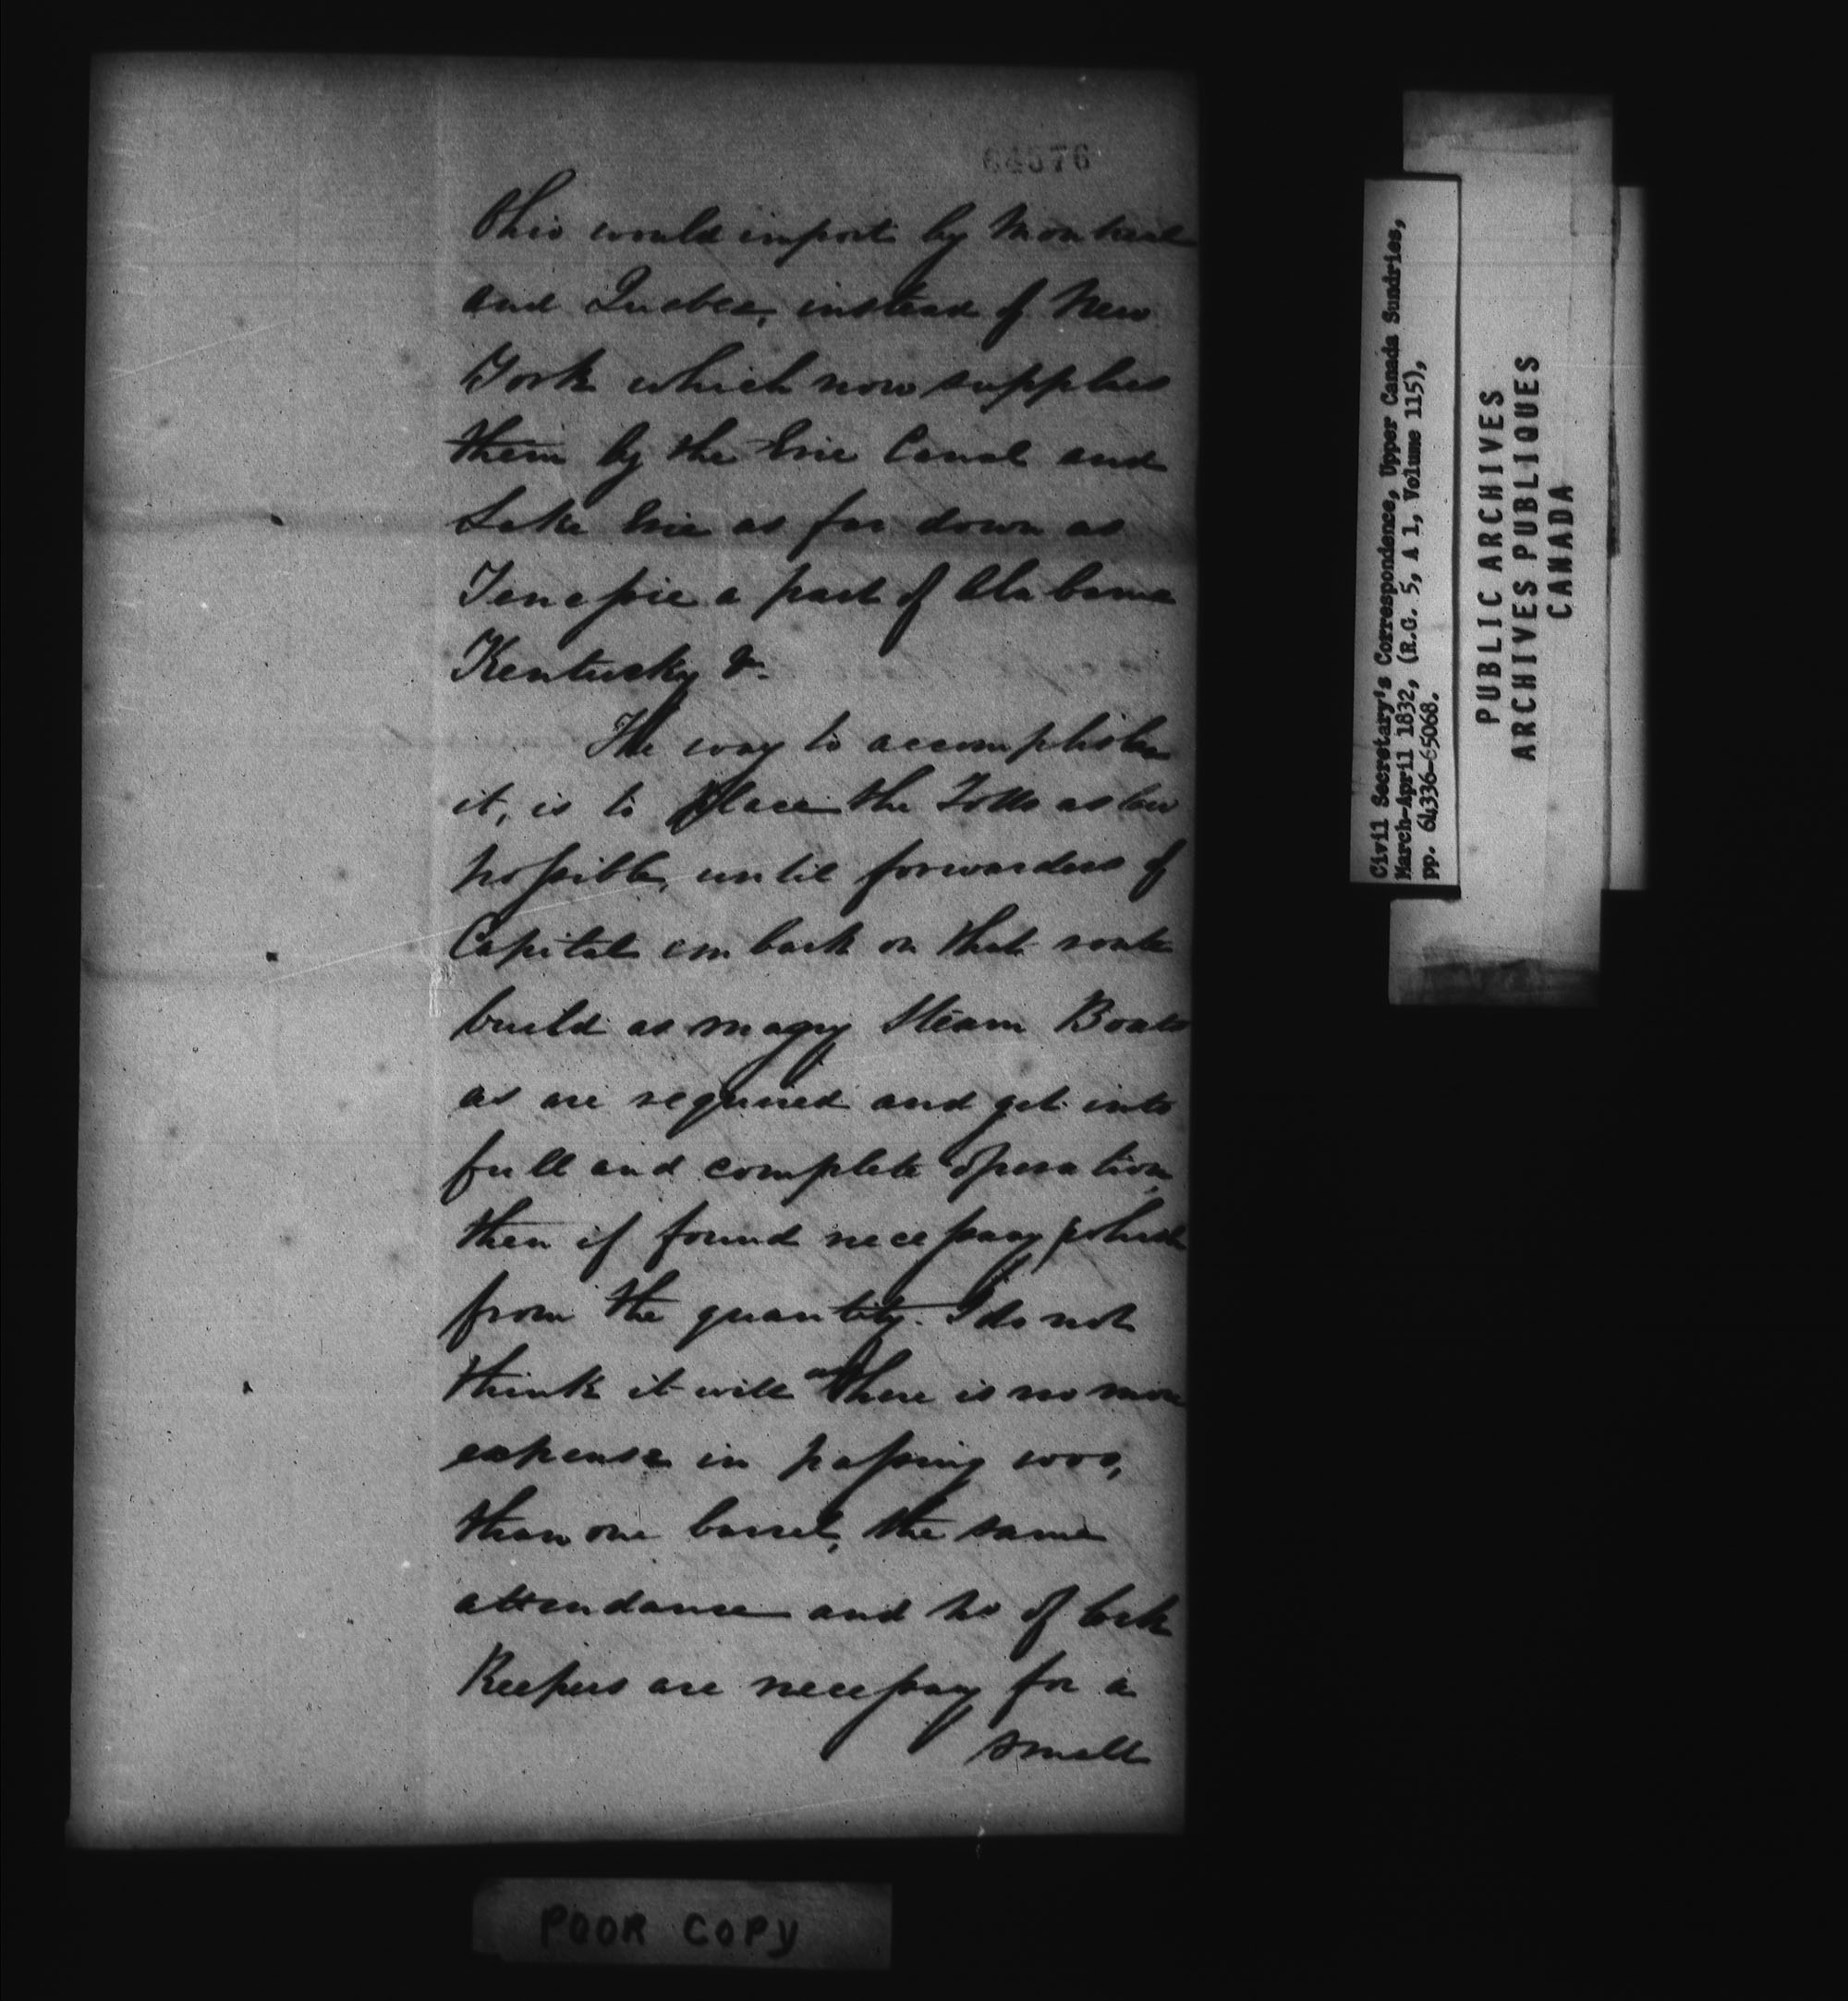 64576
Ohio would import by Montreal
and Quebec, instead of New
York which now supplies
them by the Erie Canal and
Lake Erie as far down as
Tenessie a part of Alabama
Kentucky &c.
The way to accomplish
it, is to place the Tolls as low
possible, until forwarders of
Capital embark on that route
build as many Steam Boats
as are required and get into
full and complete operation,
then if found necessary
from the quantity. I do not
think it will as there is no more
expense in passing 1000,
than one barrel, the same
attendance and No of Lock
Keepers are necessary for a
small
POOR COPY
Civil Secretary's Correspondence, Upper Canada Sundries,
March-April 1832, (R.G. 5, A 1, Volume 115),
pp. 64336-65068.
PUBLIC ARCHIVES
ARCHIVES PUBLIQUES
CANADA